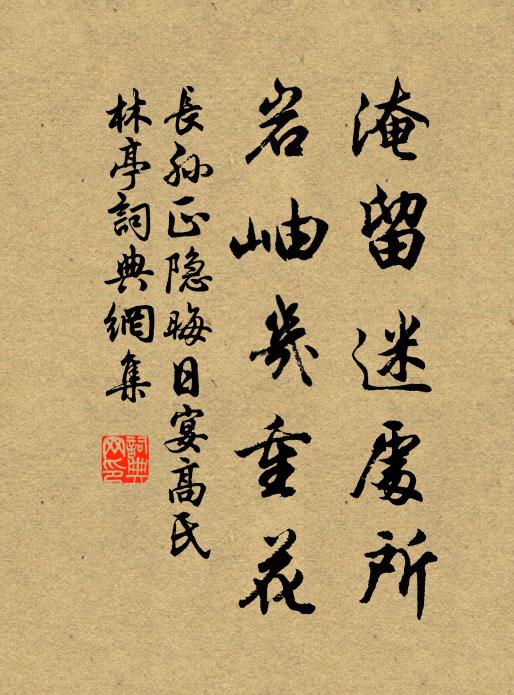 淹留迷處所
岩岫幾重花
長孫正隐晦日宴高氏
林亭詞典網集
詞典
网印